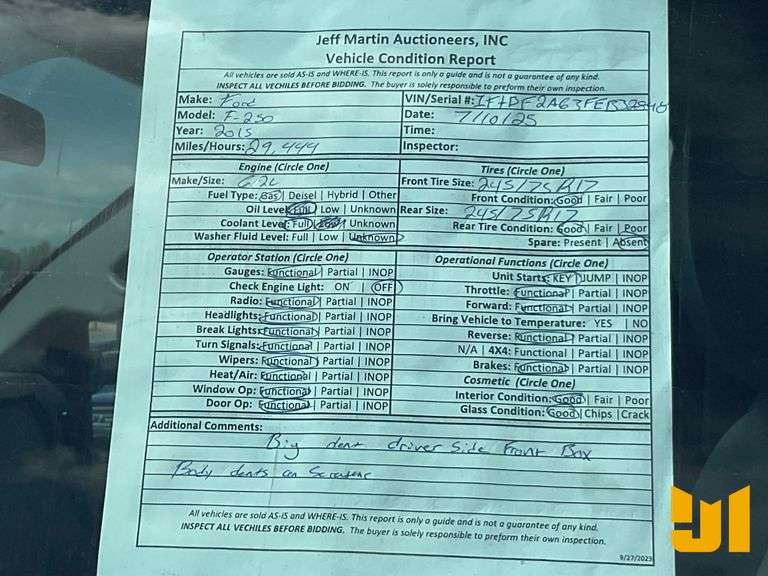 Jeff Martin Auctioneers, INC
Vehicle Condition Report
All vehicles are sold AS-IS and WHERE-IS. This report is only a guide and is not a guarantee of any kind.
INSPECT ALL VECHILES BEFORE BIDDING. The buyer is solely responsible to preform their own inspection.
Make: Ford
VIN/Serial #:
Model: F-250
Date: 7/10/25
Year: 2015
Time:
Miles/Hours: 29,444
Inspector:
Engine (Circle One)
Tires (Circle One)
Make/Size: 6.2L
Front Tire Size: 245/75R17
Fuel Type: Gas | Deisel | Hybrid | Other
Front Condition: Good | Fair | Poor
Oil Level: Full | Low | Unknown
Rear Size: 245/75R17
Coolant Level: Full | Low | Unknown
Rear Tire Condition: Good | Fair | Poor
Washer Fluid Level: Full | Low | Unknown
Spare: Present | Absent
Operator Station (Circle One)
Operational Functions (Circle One)
Gauges: Functional | Partial | INOP
Unit Starts: KEY | JUMP | INOP
Check Engine Light: ON | OFF
Throttle: Functional | Partial | INOP
Radio: Functional | Partial | INOP
Forward: Functional | Partial | INOP
Headlights: Functional | Partial | INOP
Bring Vehicle to Temperature: YES | NO
Break Lights: Functional | Partial | INOP
Reverse: Functional | Partial | INOP
Turn Signals: Functional | Partial | INOP
N/A | 4X4: Functional | Partial | INOP
Wipers: Functional | Partial | INOP
Brakes: Functional | Partial | INOP
Heat/Air: Functional | Partial | INOP
Cosmetic (Circle One)
Window Op: Functional | Partial | INOP
Interior Condition: Good | Fair | Poor
Door Op: Functional | Partial | INOP
Glass Condition: Good | Chips | Crack
Additional Comments:
Big dent driver side Front Box
Body dents
All vehicles are sold AS-IS and WHERE-IS. This report is only a guide and is not a guarantee of any kind.
INSPECT ALL VECHILES BEFORE BIDDING. The buyer is solely responsible to preform their own inspection.
9/27/2023